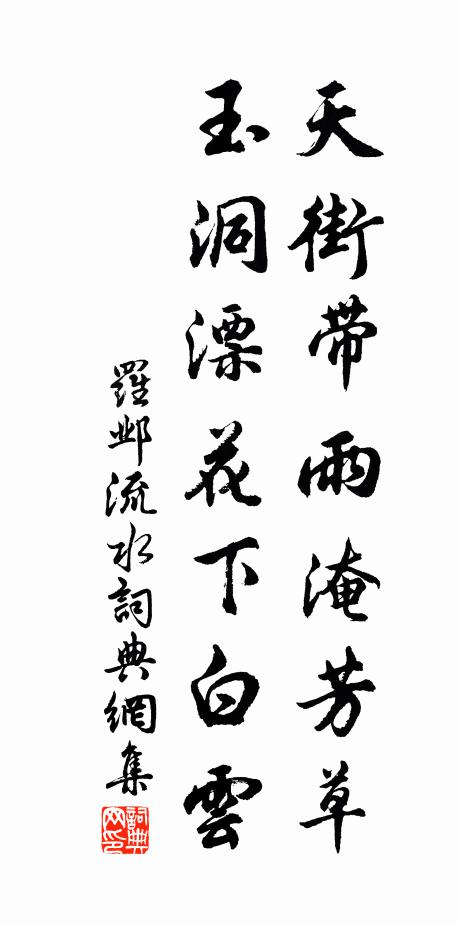 天街帶雨淹芳草
玉洞漂花下白雲
羅鄴流水詞典網集
詞典
网印